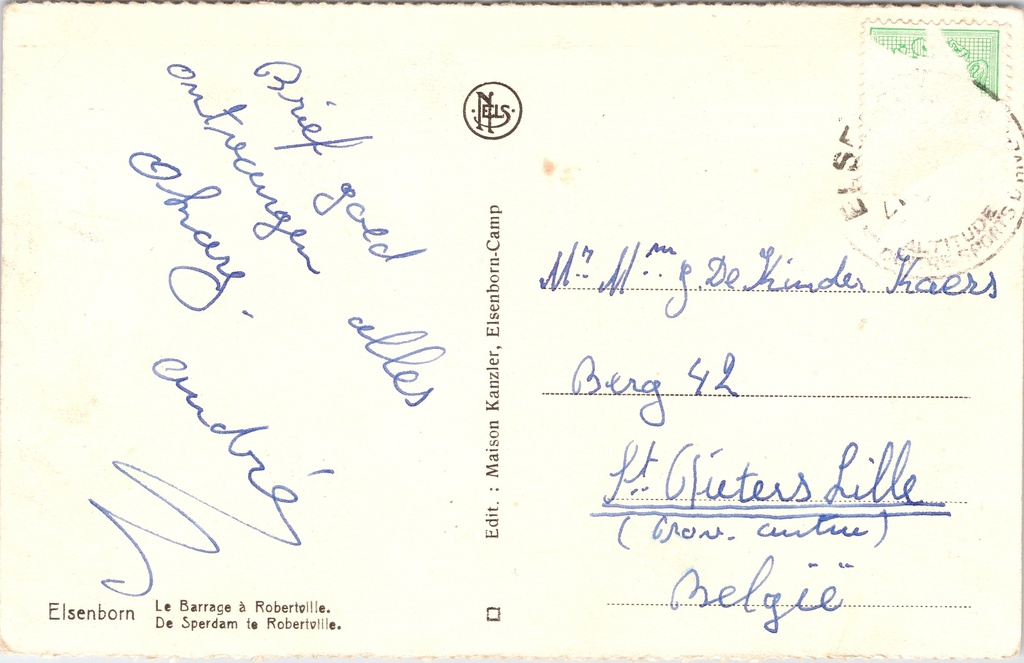 Brief goed
ontvangen alles
Okay.
andré
Elsenborn
Le Barrage à Robertville.
De Sperdam te Robertville.
NELS
Edit. : Maison Kanzler, Elsenborn-Camp
ELSE
ALTITUDE
SPORTS D'HIVER
Mr Mme J. De Kinder Kaers
Berg 42
St Pieters Lille
(Prov. antw)
België